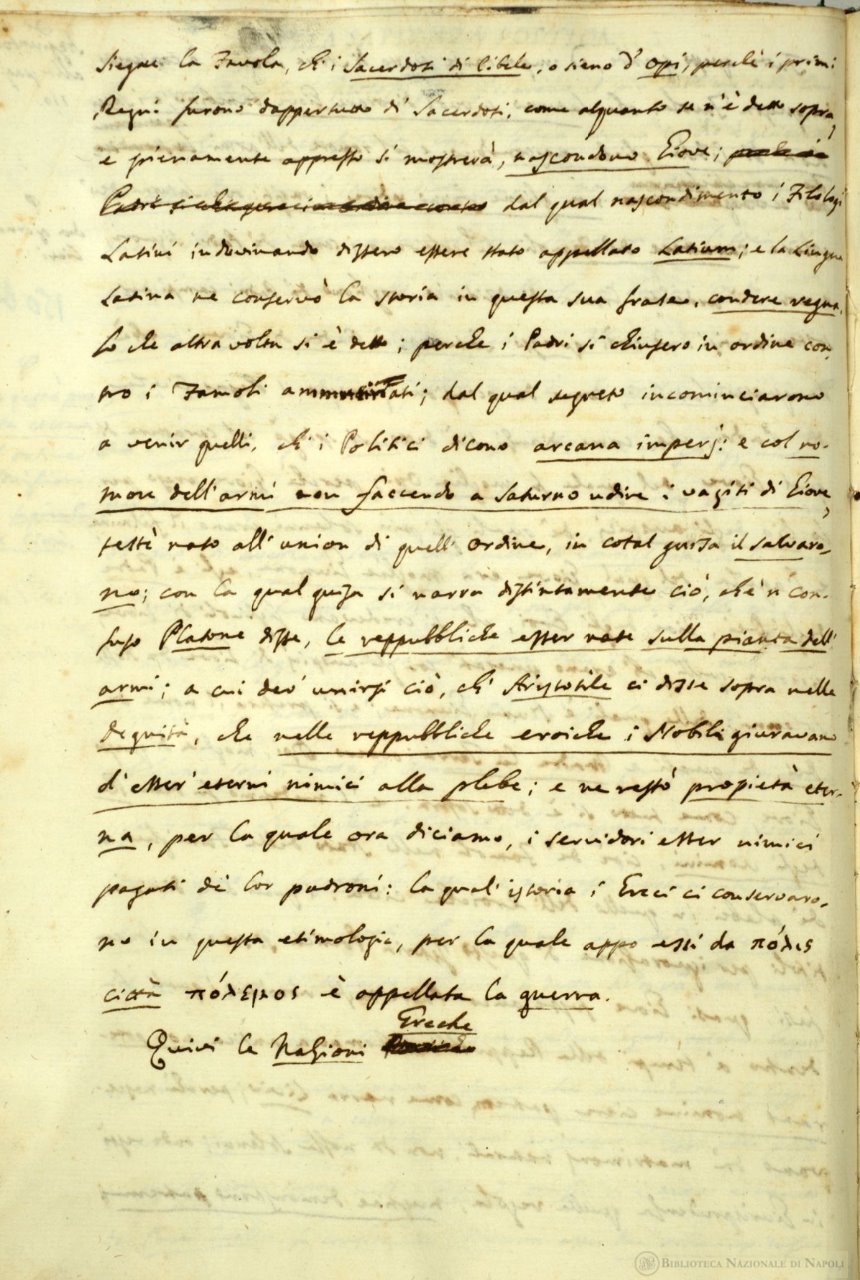 Siegue la Favola, ch'i Sacerdoti di Cibele, o sieno d'Opi, perchè i primi
Regni furono dappertutto di Sacerdoti, come alquanto se n'è detto sopra,
e pienamente appresso si mostrerà, nascondono Giove;
dal qual nascondimento i Filologi
Latini indovinando dissero essere stato appellato Latium; e la Lingua
Latina ne conservò la storia in questa sua frase, condere regna,
lo che altra volta si è detto; perche i Padri si chiusero in ordine con-
tro i Famoli ammutinati; dal qual segreto incominciarono
a venir quelli, ch'i Politici dicono arcana imperj: e col ro-
more dell'armi non faccendo a Saturno udire i vagiti di Giove,
testè nato all'union di quell'Ordine, in cotal guisa il salvaro-
no; con la qual guisa si narra distintamente ciò, che 'n con-
fuso Platone disse, le reppubbliche esser nate sulla pianta dell'
armi; a cui dev'unirsi ciò, ch'Aristotile ci disse sopra nelle
Degnità, che nelle reppubbliche eroiche i Nobili giuravano
d'esser'eterni nimici alla plebe; e ne restò propietà eter-
na, per la quale ora diciamo, i servidori esser nimici
pagati de' lor padroni: la qual'istoria i Greci ci conservaro-
no in questa etimologia, per la quale appo essi da πόλις
città πόλεμος è appellata la guerra.
Quivi le Nazioni Greche
BIBLIOTECA NAZIONALE DI NAPOLI